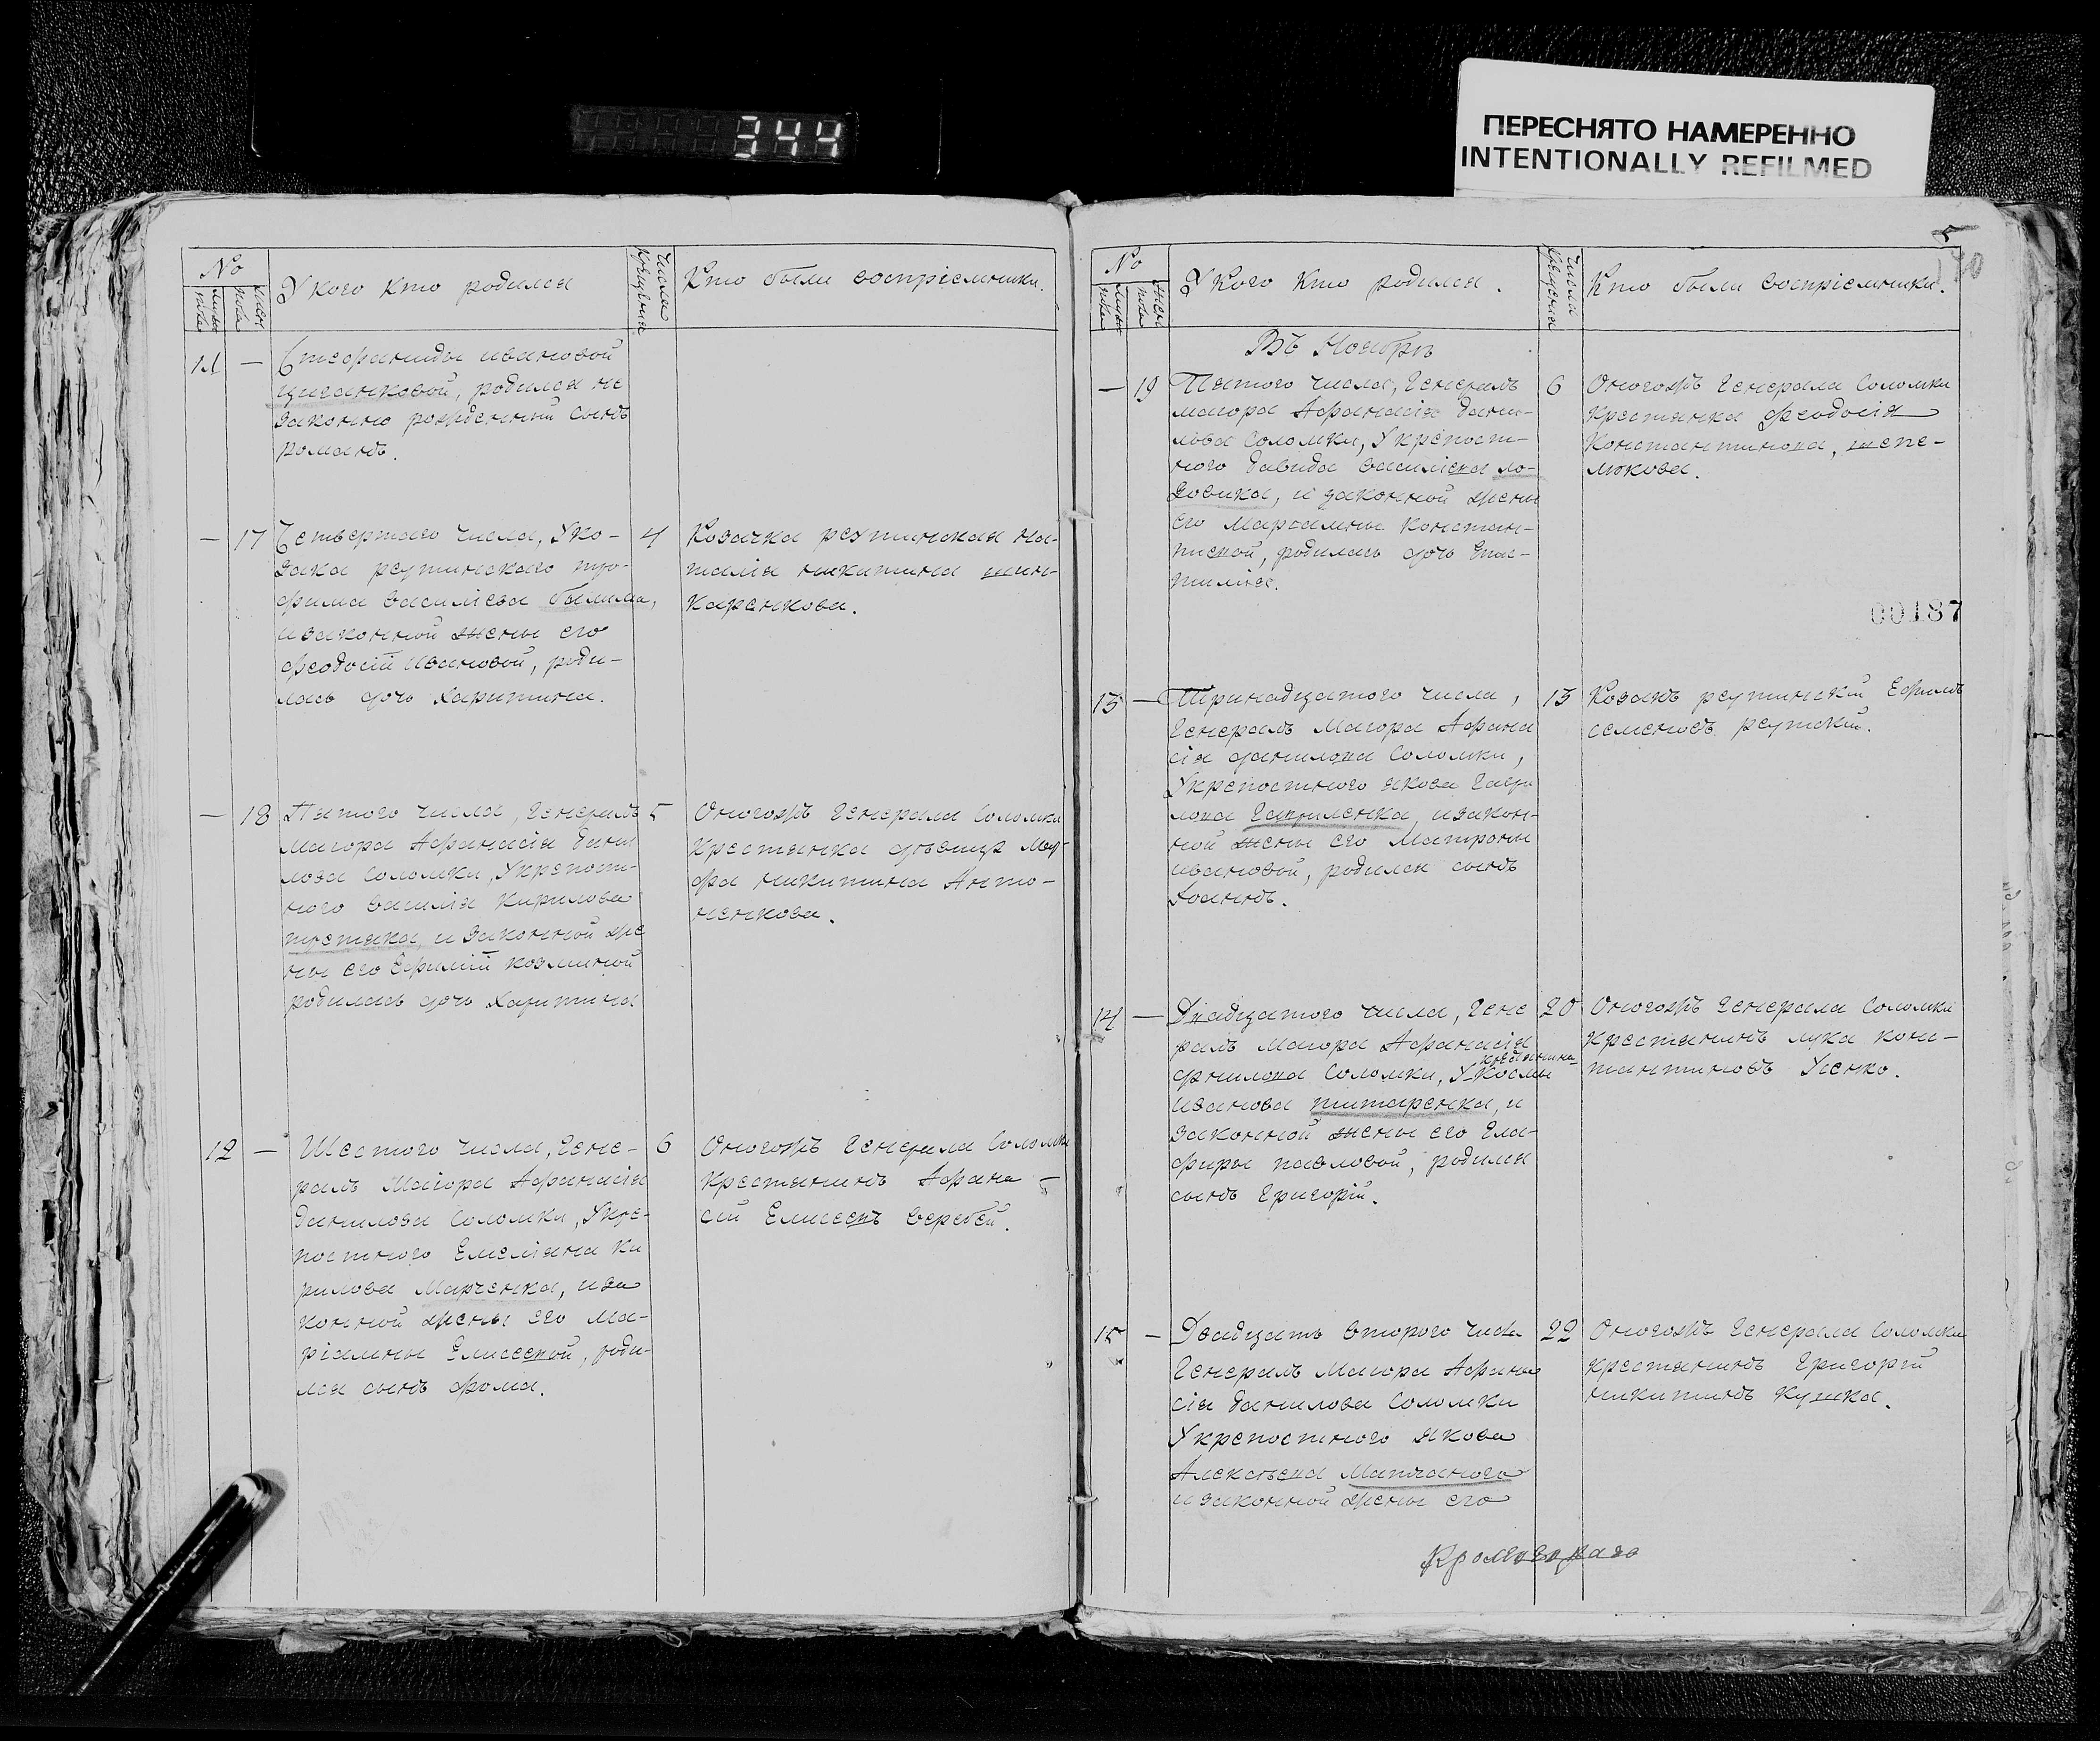 344
ПЕРЕСНЯТО НАМЕРЕННО
INTENTIONALLY REFILMED
No
У кого кто родился
Числа крещенія
Кто были воспріемники.
11 —
Стефаниды ивановой
циганковой, родился не
законно рожденный сынъ
Романъ.
— 17
Четвертаго числа, У ко-
зака реутинскаго тро-
фима василіева былима,
и законной жены его
феодосіи Ивановой, роди-
лась дочь Харитина.
4
Козачка реутинская на-
талія никитина шин-
каренкова.
— 18
Пятого числа, Генералъ
Маиора Афанасія Дани
лова Соломки, Укрепост-
ного василія Кирилова
пустяка, и законной же
ны его Ефиміи козминой
родилась дочь Харитина
5
Оногожъ Генерала Соломки
Крестянка девица Мар-
фа никитина Анто-
ненкова.
12 —
Шестого числа, Гене-
ралъ Маіора Афанасія
Данилова Соломки, Укре-
постного Емеліяна Ки
рилова Марченка, и за
конной жены его Ма-
ріамны Елисеевой, роди-
лся сынъ фома.
6
Оногожъ Генерала Соломки
Крестянинъ Афана-
сій Елисеевъ веребей.
5
170
No
У Кого Кто родился.
Числа Крещенія
Кто были воспріемники.
Въ Ноябре
— 19
Пятого числа, Генералъ
маиора Афанасія Дани-
лова Соломки, Укрепост-
ного Давида василіева ло-
зовика, и законной жены
его Мариамны Констан-
тиевой, родилась дочь Епис-
тимія.
6
Оногожъ Генерала Соломки
Крестянка феодосія
Константинова, шепе-
люкова.
00187
13 —
Тринадцатого числа,
Генералъ Маиора Афана
сія данилова Соломки,
Укрепостного якова Гаври
лова Гавриленка, и закон-
ной жены его Матроны
ивановой, родился сынъ
Іоаннъ.
13
Козакъ реутинскій Ефимъ
семеновъ реутскій.
14 —
Двадцатого числа, Гене
ралъ Маиора Афанасія
днилова Соломки, У Космы
крестянина
Иванова титаренка, и
законной жены его Гла-
фиры павловой, родился
сынъ Григорій.
20
Оногожъ Генерала Соломки
крестянинъ лука конс-
тантиновъ Усенко.
15 —
Двадцать второго числа
Генералъ Маиора Афана
сія Данилова Соломки
Укрепостного якова
Алексеева Матчаного
и законной жены его
22
Оногожъ Генерала Соломки
крестянинъ Григорій
никитинъ Кушка.